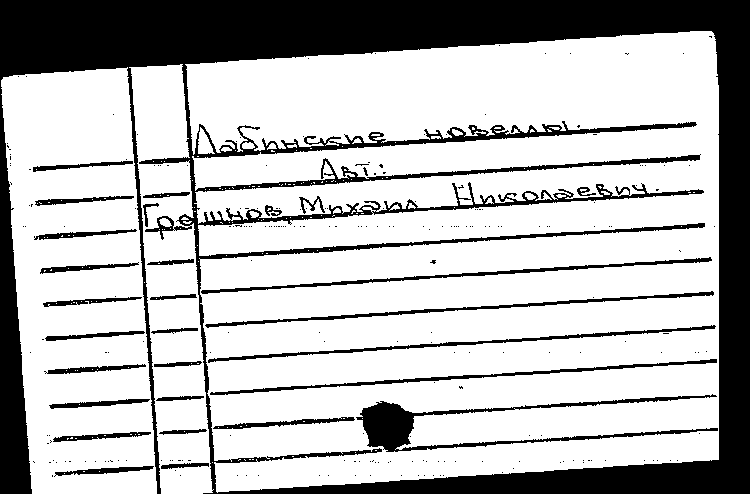 Лабинские новеллы.
Авт.:
Грешнов, Михаил Николаевич.